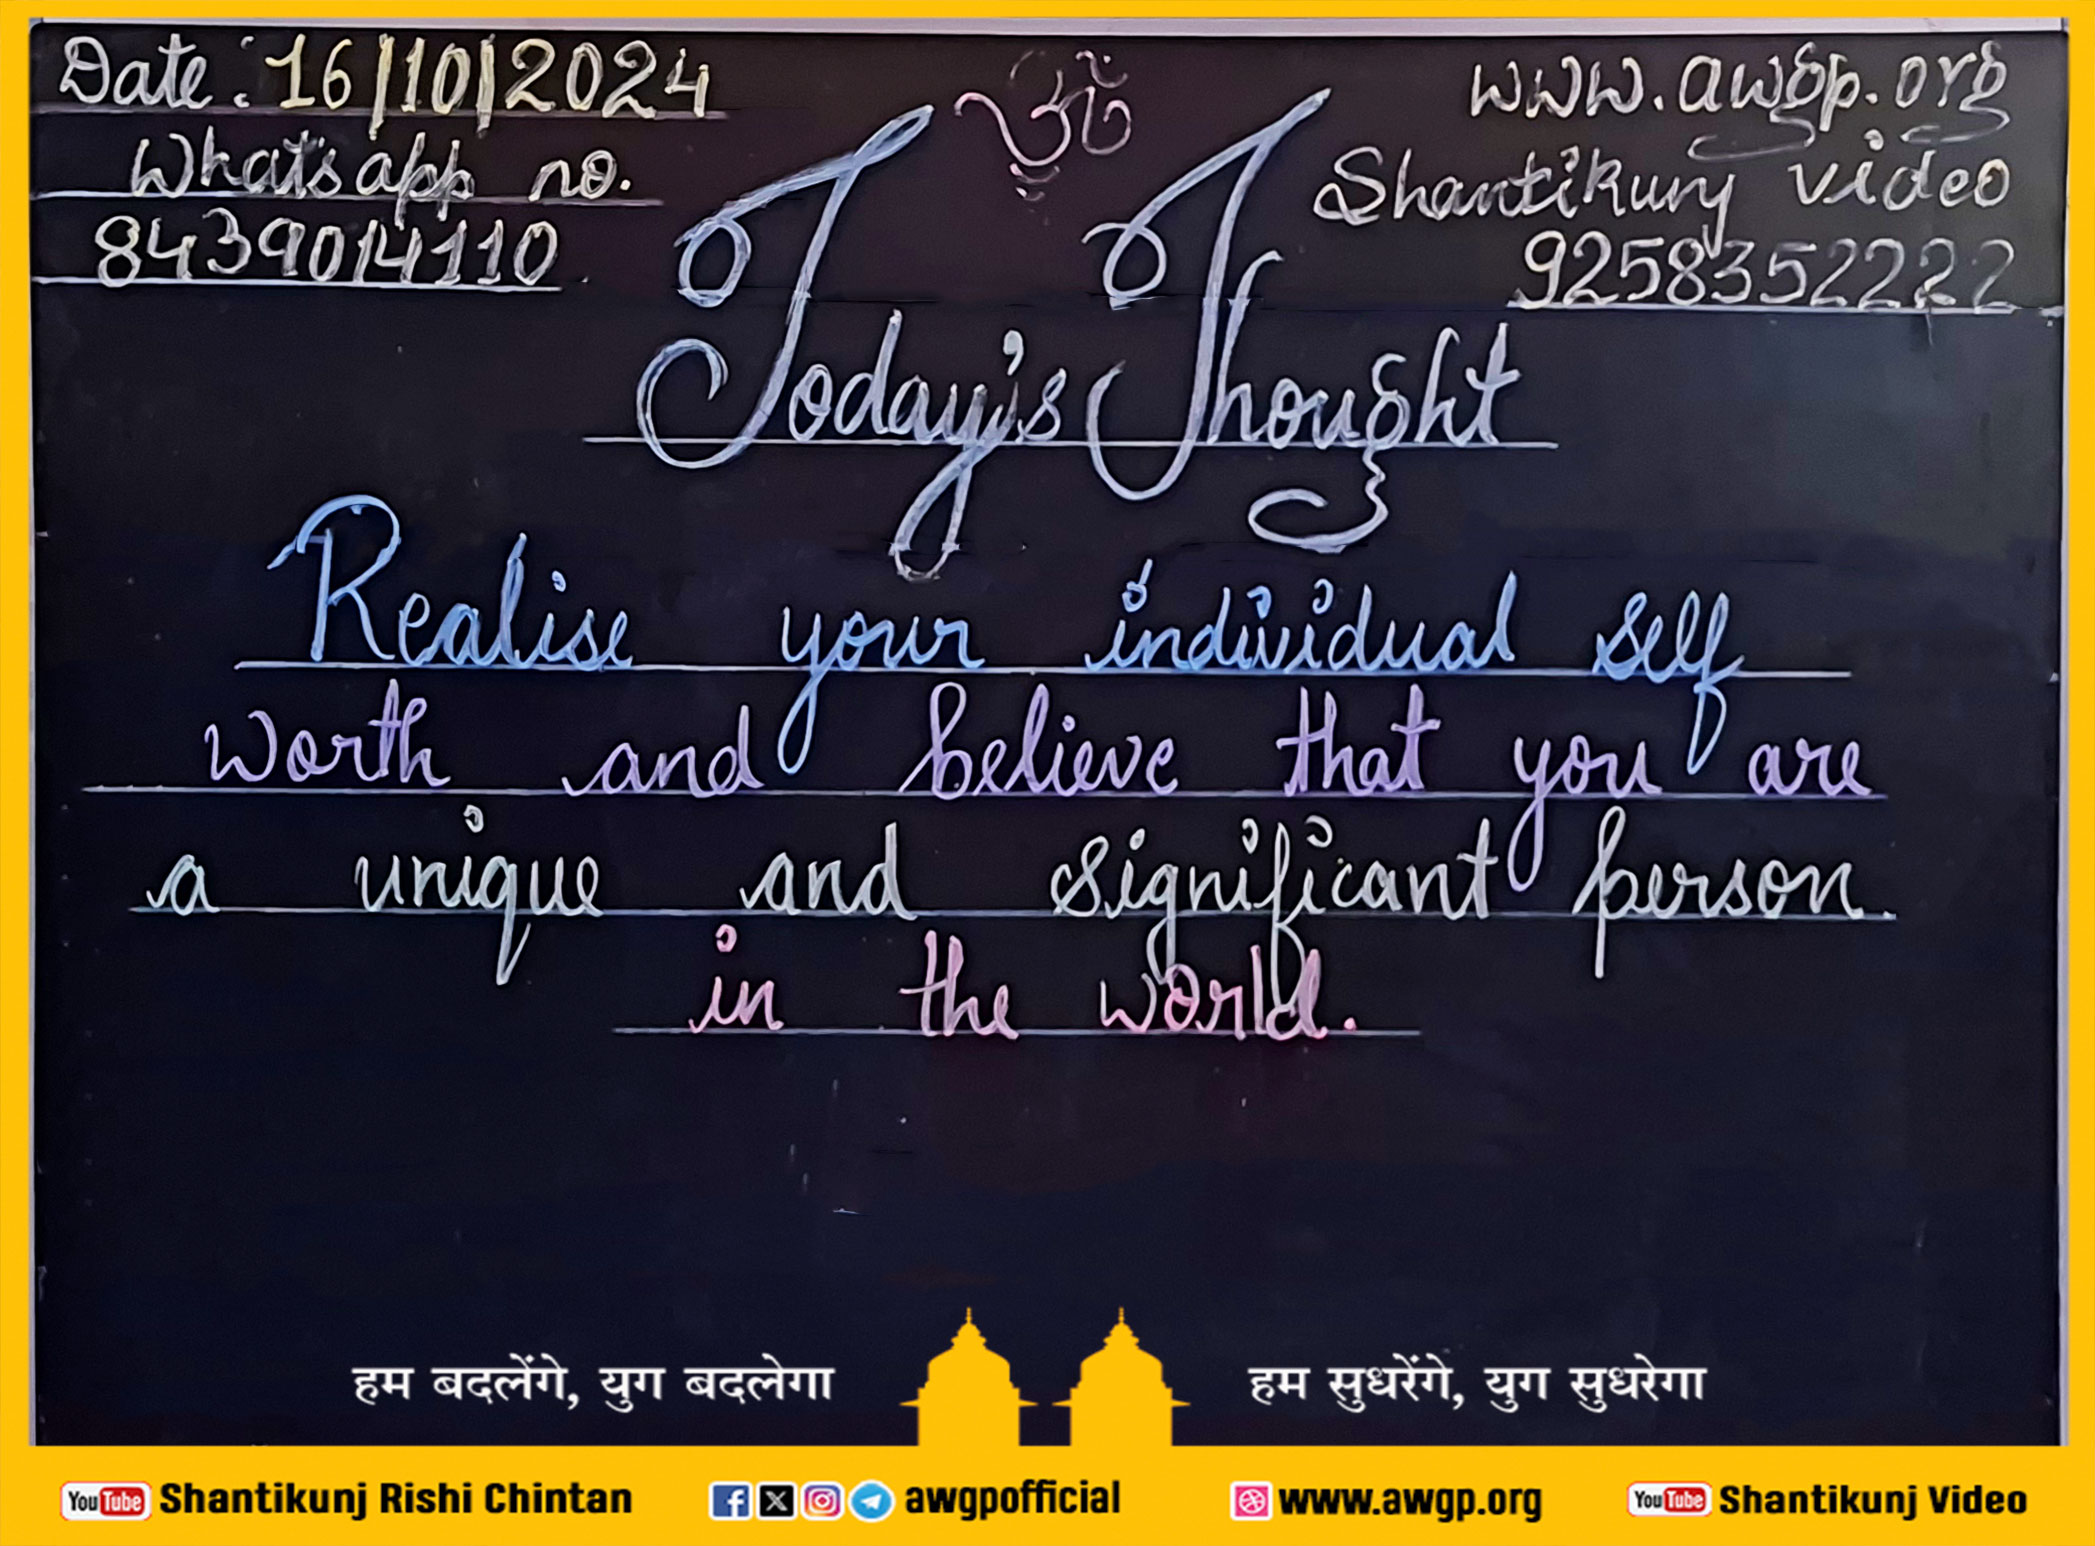 Date: 16/10/2024
What's app no.
8439014110
ॐ
www.awgp.org
Shantikunj video
9258352222
Today's Thought
Realise your individual self
worth and believe that you are
a unique and significant person
in the world.
हम बदलेंगे, युग बदलेगा
हम सुधरेंगे, युग सुधरेगा
YouTube Shantikunj Rishi Chintan
awgpofficial
www.awgp.org
YouTube Shantikunj Video